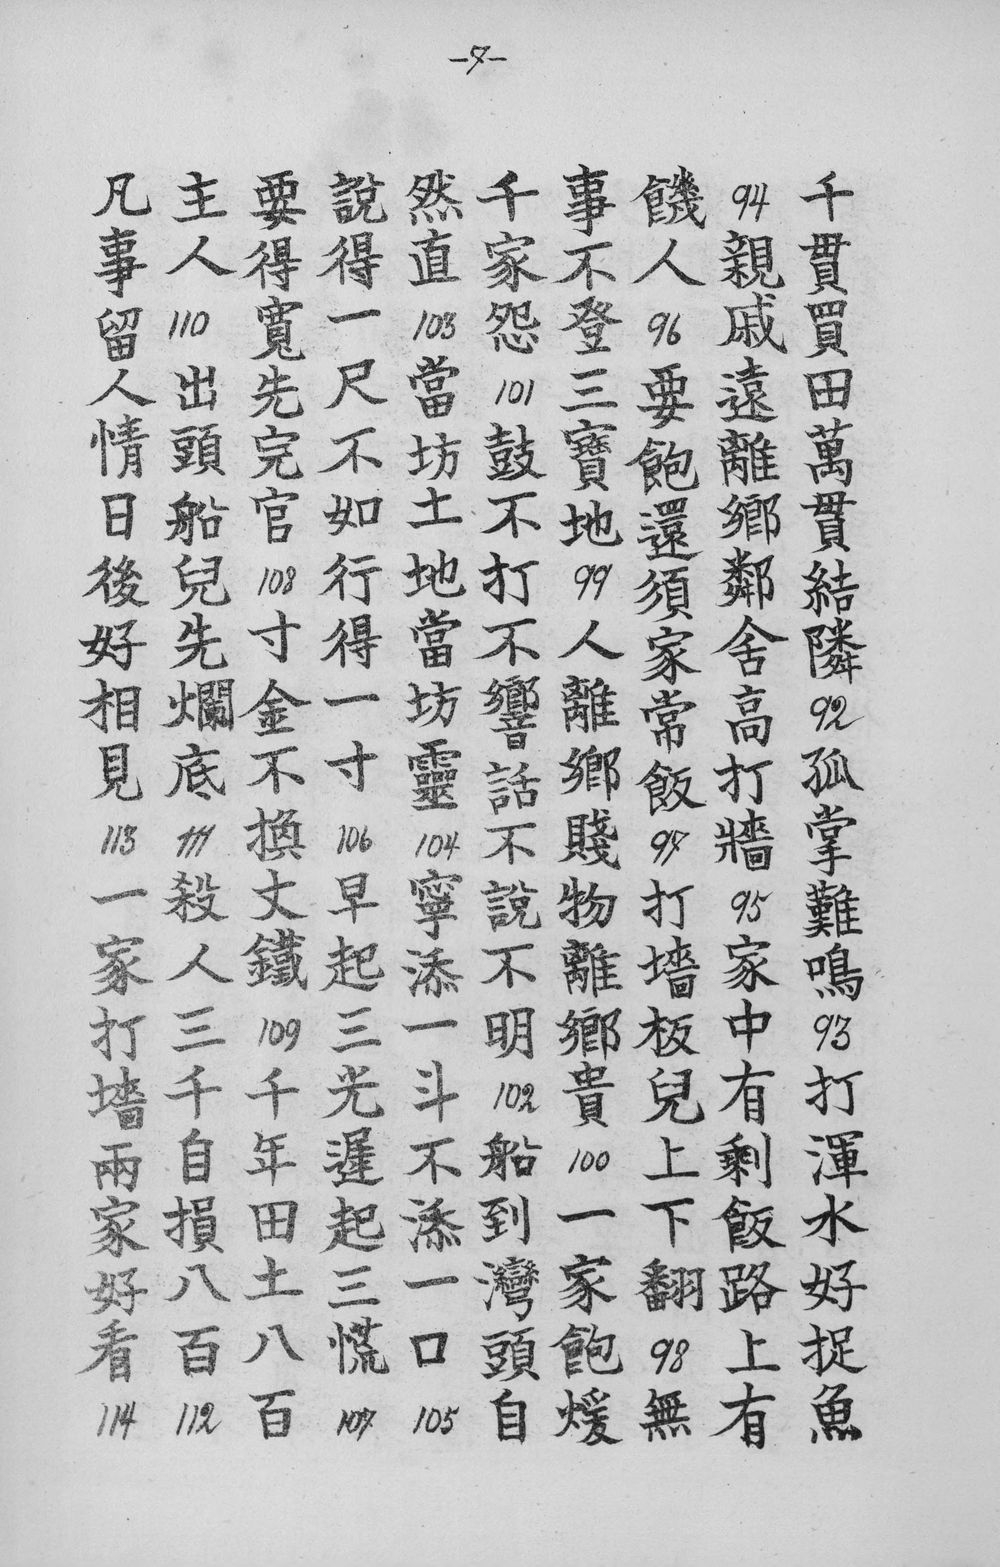 -7-
千貫買田萬貫結隣92孤掌難鳴93打渾水好捉魚
94親戚遠離鄉鄰舍高打牆95家中有剩飯路上有
饑人96要飽還須家常飯97打墻板兒上下翻98無
事不登三寶地99人離鄉賤物離鄉貴100一家飽煖
千家怨101鼓不打不響話不說不明102船到灣頭自
然直103當坊土地當坊靈104寧添一斗不添一口105
說得一尺不如行得一寸106早起三光遲起三慌107
要得寬先完官108寸金不換丈鐵109千年田土八百
主人110出頭船兒先爛底111殺人三千自損八百112
凡事留人情日後好相見113一家打墻兩家好看114